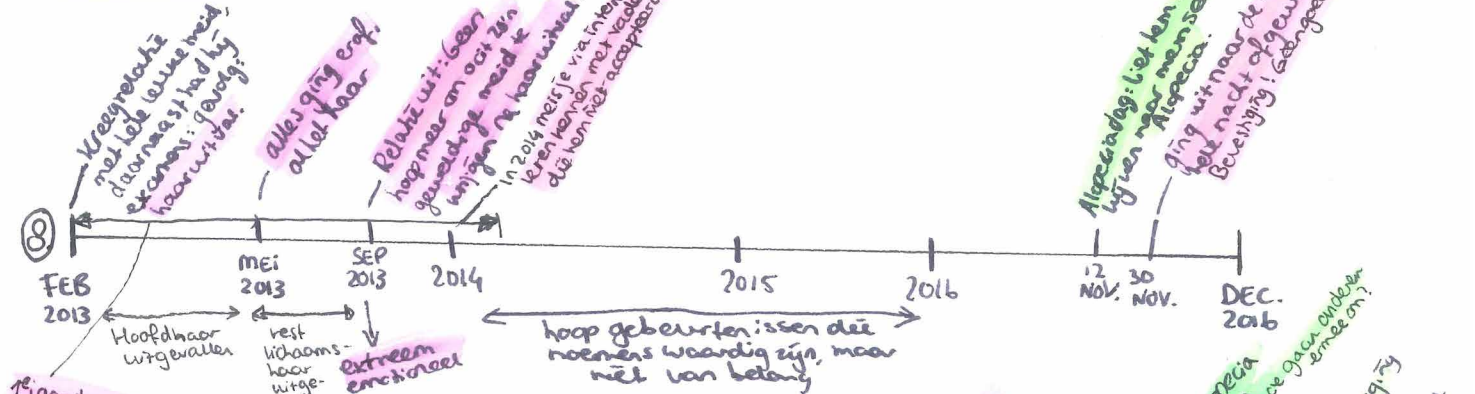 Kreeg relatie
met hele leuke meid,
daarnaast had hij
examens: gevolg:
haaruitval.
alles ging eraf.
al het haar
Relatie uit: Geen
hoop meer on ooit zo'n
geweldige meid te
krijgen na haaruitval
In 2014 meisje via intern
leren kennen met vader
die hem niet accepteerd
Alopeciadag: liet hem
kijken naar mensen
Alopecia.
ging uit naar de
hele nacht afgew
Bevestiging! Geen goe
8
FEB
2013
MEI
2013
SEP
2013
2014
2015
2016
12
NOV.
30
NOV.
DEC.
2016
Hoofdhaar
uitgevallen
rest
lichaams-
haar
uitge-
extreem
emotioneel
hoop gebeurtenissen die
noemens waardig zijn, maar
niet van belang
pecia
oe gaan anderen
ermee om?